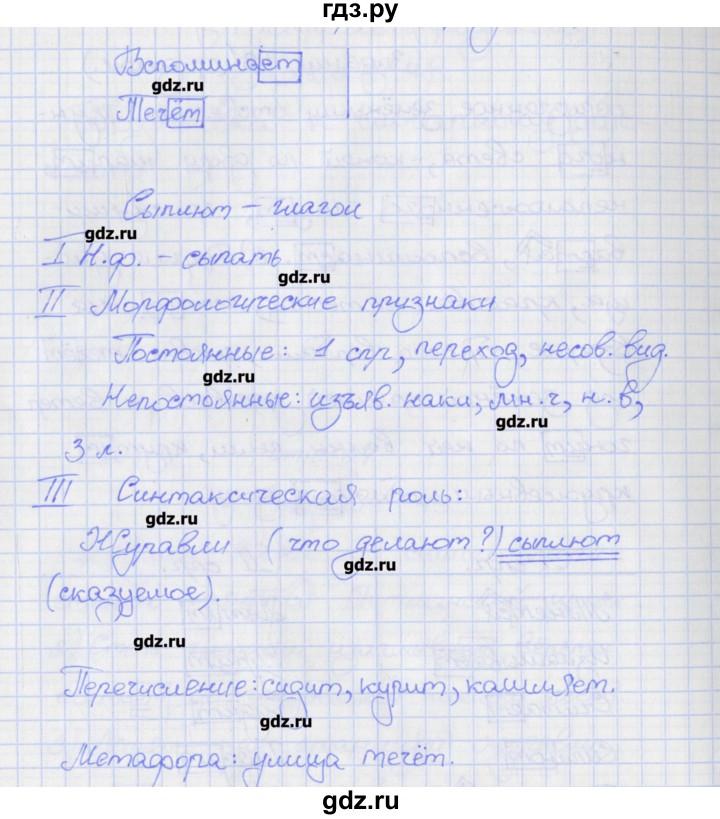 гдз.ру
Вспоминает
gdz.ru
Течёт
Сыплют – глагол
gdz.ru
I Н.ф. – сыпать.
gdz.ru
II Морфологические признаки
Постоянные: 1 спр, переход, несов. вид.
gdz.ru
Непостоянные: изъяв. накл, мн.ч, н.в,
gdz.ru
3 л.
III Синтаксическая роль:
gdz.ru
Журавли (что делают?) сыплют
gdz.ru
(сказуемое).
gdz.ru
Перечисление: сидит, курит, кашляет.
gdz.ru
Метафора: улица течёт.
gdz.ru